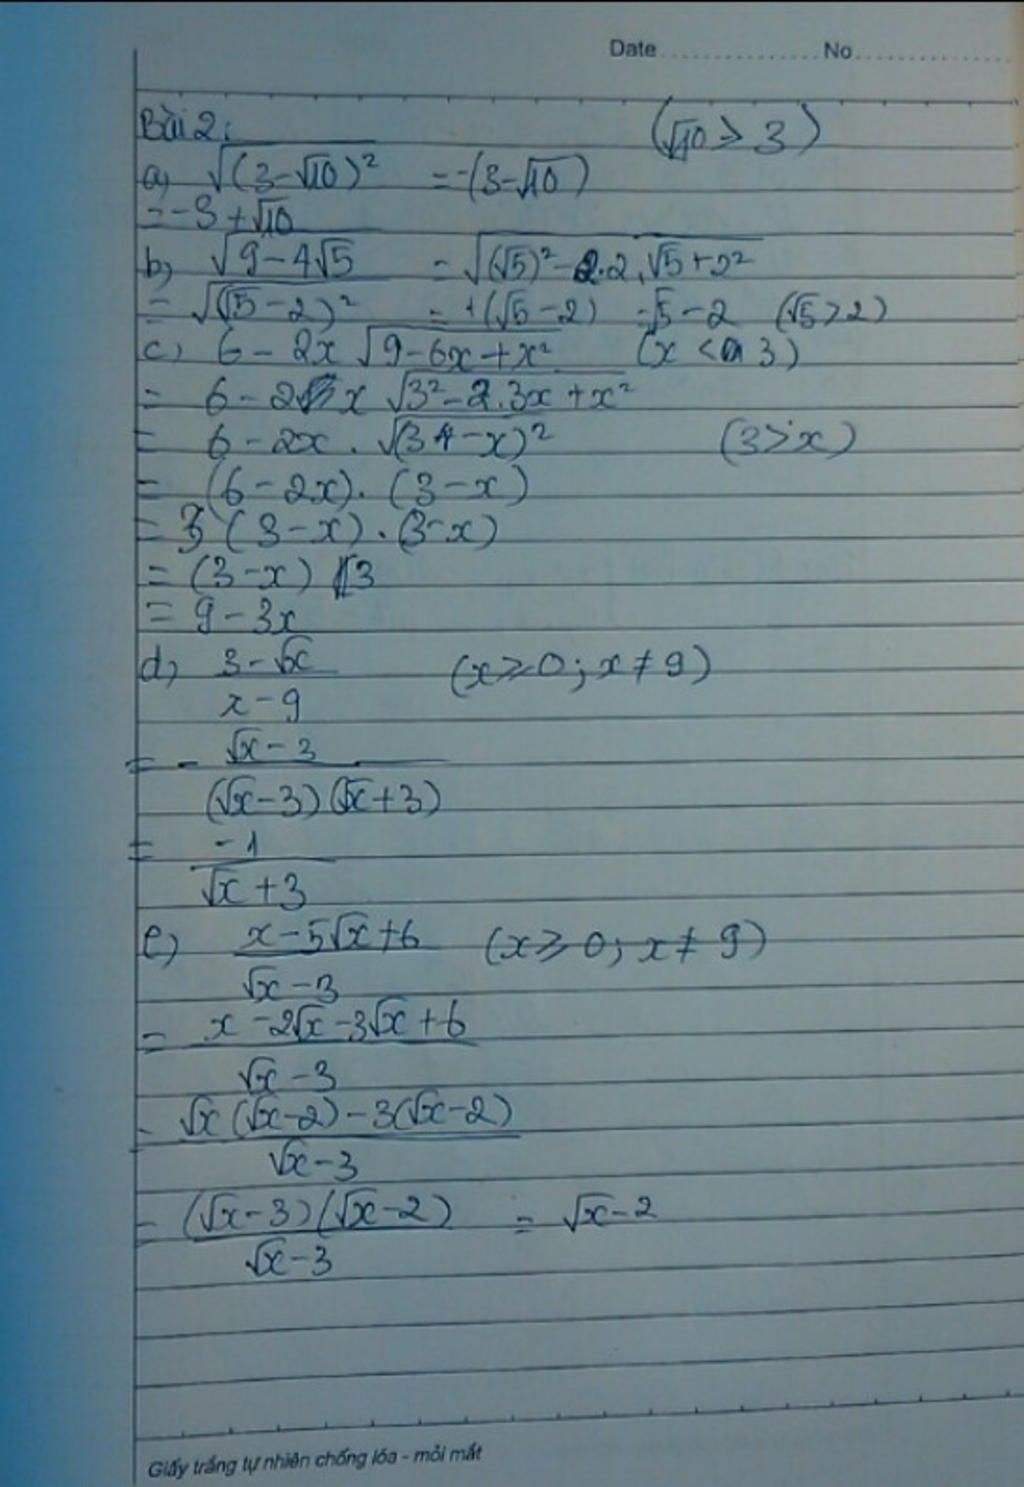 Date ............... No. ...............
Bài 2: (√10 > 3)
a) √(3-√10)² = -(3-√10)
= -3 + √10
b) √(9-4√5) = √((√5)² - 2.2.√5 + 2²)
= √(√5-2)² = +(√5-2) = √5-2 (√5>2)
c) 6 - 2x √(9-6x+x²) (x < 3)
= 6 - 2x √(3²-2.3x+x²)
= 6 - 2x . √(3-x)² (3>x)
= (6-2x). (3-x)
= 3 (3-x) . (3-x)
= (3-x) 3
= 9 - 3x
d) (3-√x)/(x-9) (x≥0; x≠9)
= - (√x-3)/((√x-3)(√x+3))
= -1/(√x+3)
e) (x-5√x+6)/(√x-3) (x≥0; x≠9)
= (x-2√x-3√x+6)/(√x-3)
= (√x(√x-2)-3(√x-2))/(√x-3)
= ((√x-3)(√x-2))/(√x-3) = √x-2
Giấy trắng tự nhiên chống lóa - mỏi mắt